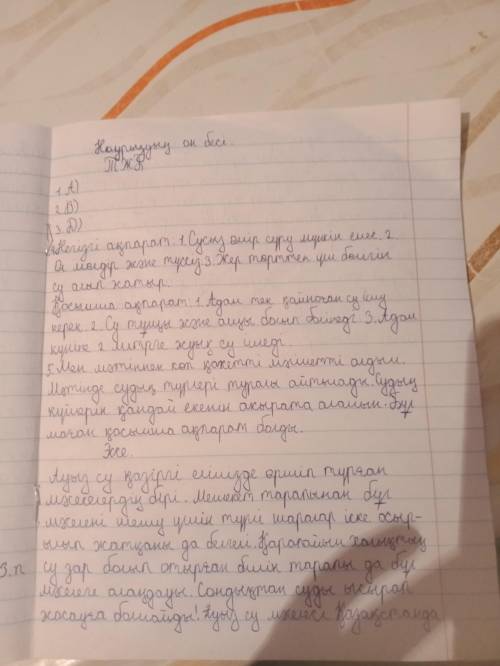 Наурыздың он бесі.
ТЖБ
1. А)
2. В)
3. Д)
4. Негізгі ақпарат: 1. Сусыз өмір сүру мүмкін емес. 2.
Ол мөлдір және түссіз. 3. Жер төрттен үш бөлігін
су алып жатыр.
Қосымша ақпарат: 1. Адам тек қайнаған су ішу
керек. 2. Су тұщы және ащы болып бөлінеді. 3. Адам
күніне 2 литрге жуық су ішеді.
5. Мен мәтіннен көп қажетті мәліметті алдым.
Мәтінде судың түрлері туралы айтылады. Судың
күйлерін қандай екенін ажырата аламын. Бұл
маған қосымша ақпарат болды.
Эссе.
Ауыз су қазіргі елімізде өршіп тұрған
мәселелердің бірі. Мемлекет тарапынан бұл
мәселені шешу үшін түрлі шаралар іске асыр-
ылып жатқаны да белгілі. Қарапайым халықтың
3.п су зар болып отырған билік тарапы да бұл
мәселеге алаңдаулы. Сондықтан суды ысырап
жасауға болмайды! Ауыз су мәселесі Қазақстанда